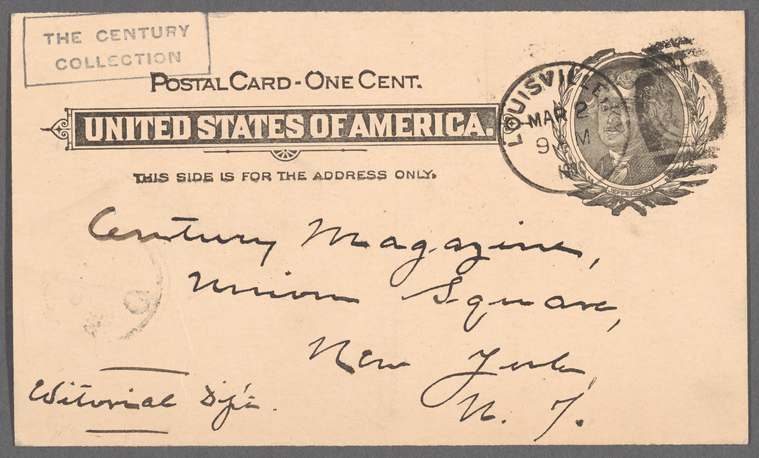 THE CENTURY
COLLECTION
POSTAL CARD - ONE CENT.
UNITED STATES OF AMERICA.
THIS SIDE IS FOR THE ADDRESS ONLY.
LOUISVILLE
MAR 2
9 M
JEFFERSON
Century Magazine,
Union Square,
New York,
N. Y.
Editorial Dp't.